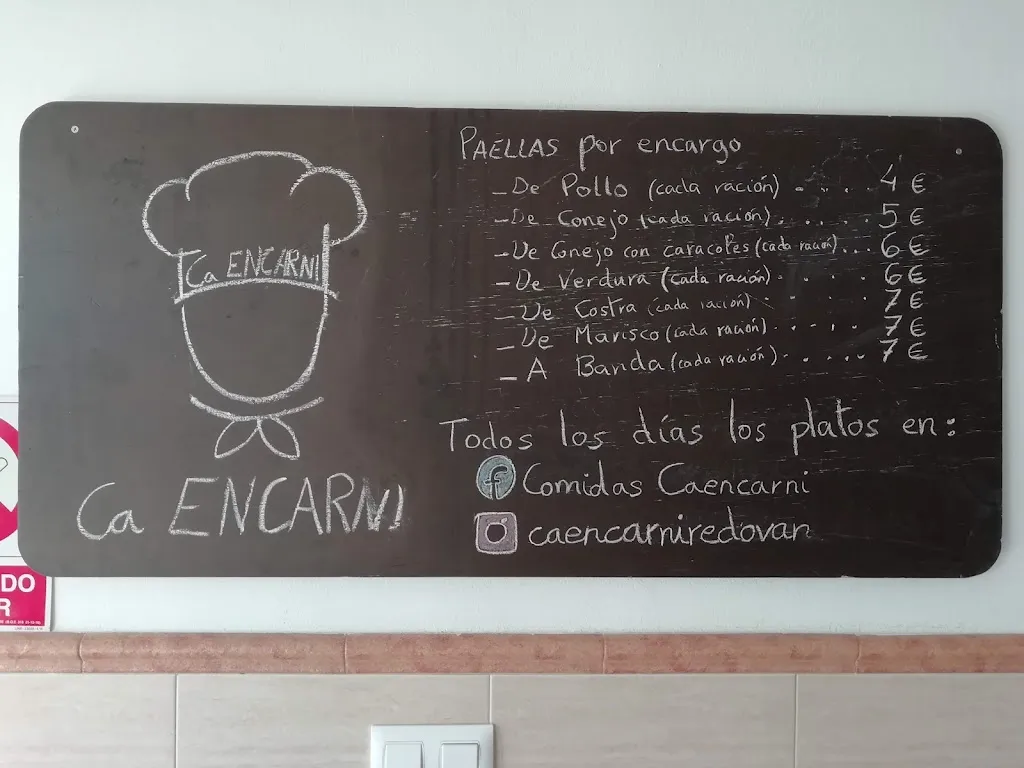 Ca ENCARNI
Ca ENCARNI
PAELLAS por encargo
- De Pollo (cada ración) - . . . 4 €
- De Conejo (cada ración) . . . . . 5 €
- De Conejo con caracoles (cada ración) . . . 6 €
- De Verdura (cada ración) . . . 6 €
- De Costra (cada ración) . . . . 7 €
- De Marisco (cada ración) . . - . . . 7 €
- A Banda (cada ración) - . . . . . 7 €
Todos los días los platos en:
f Comidas Caencarni
caencarniredovan
DO
R